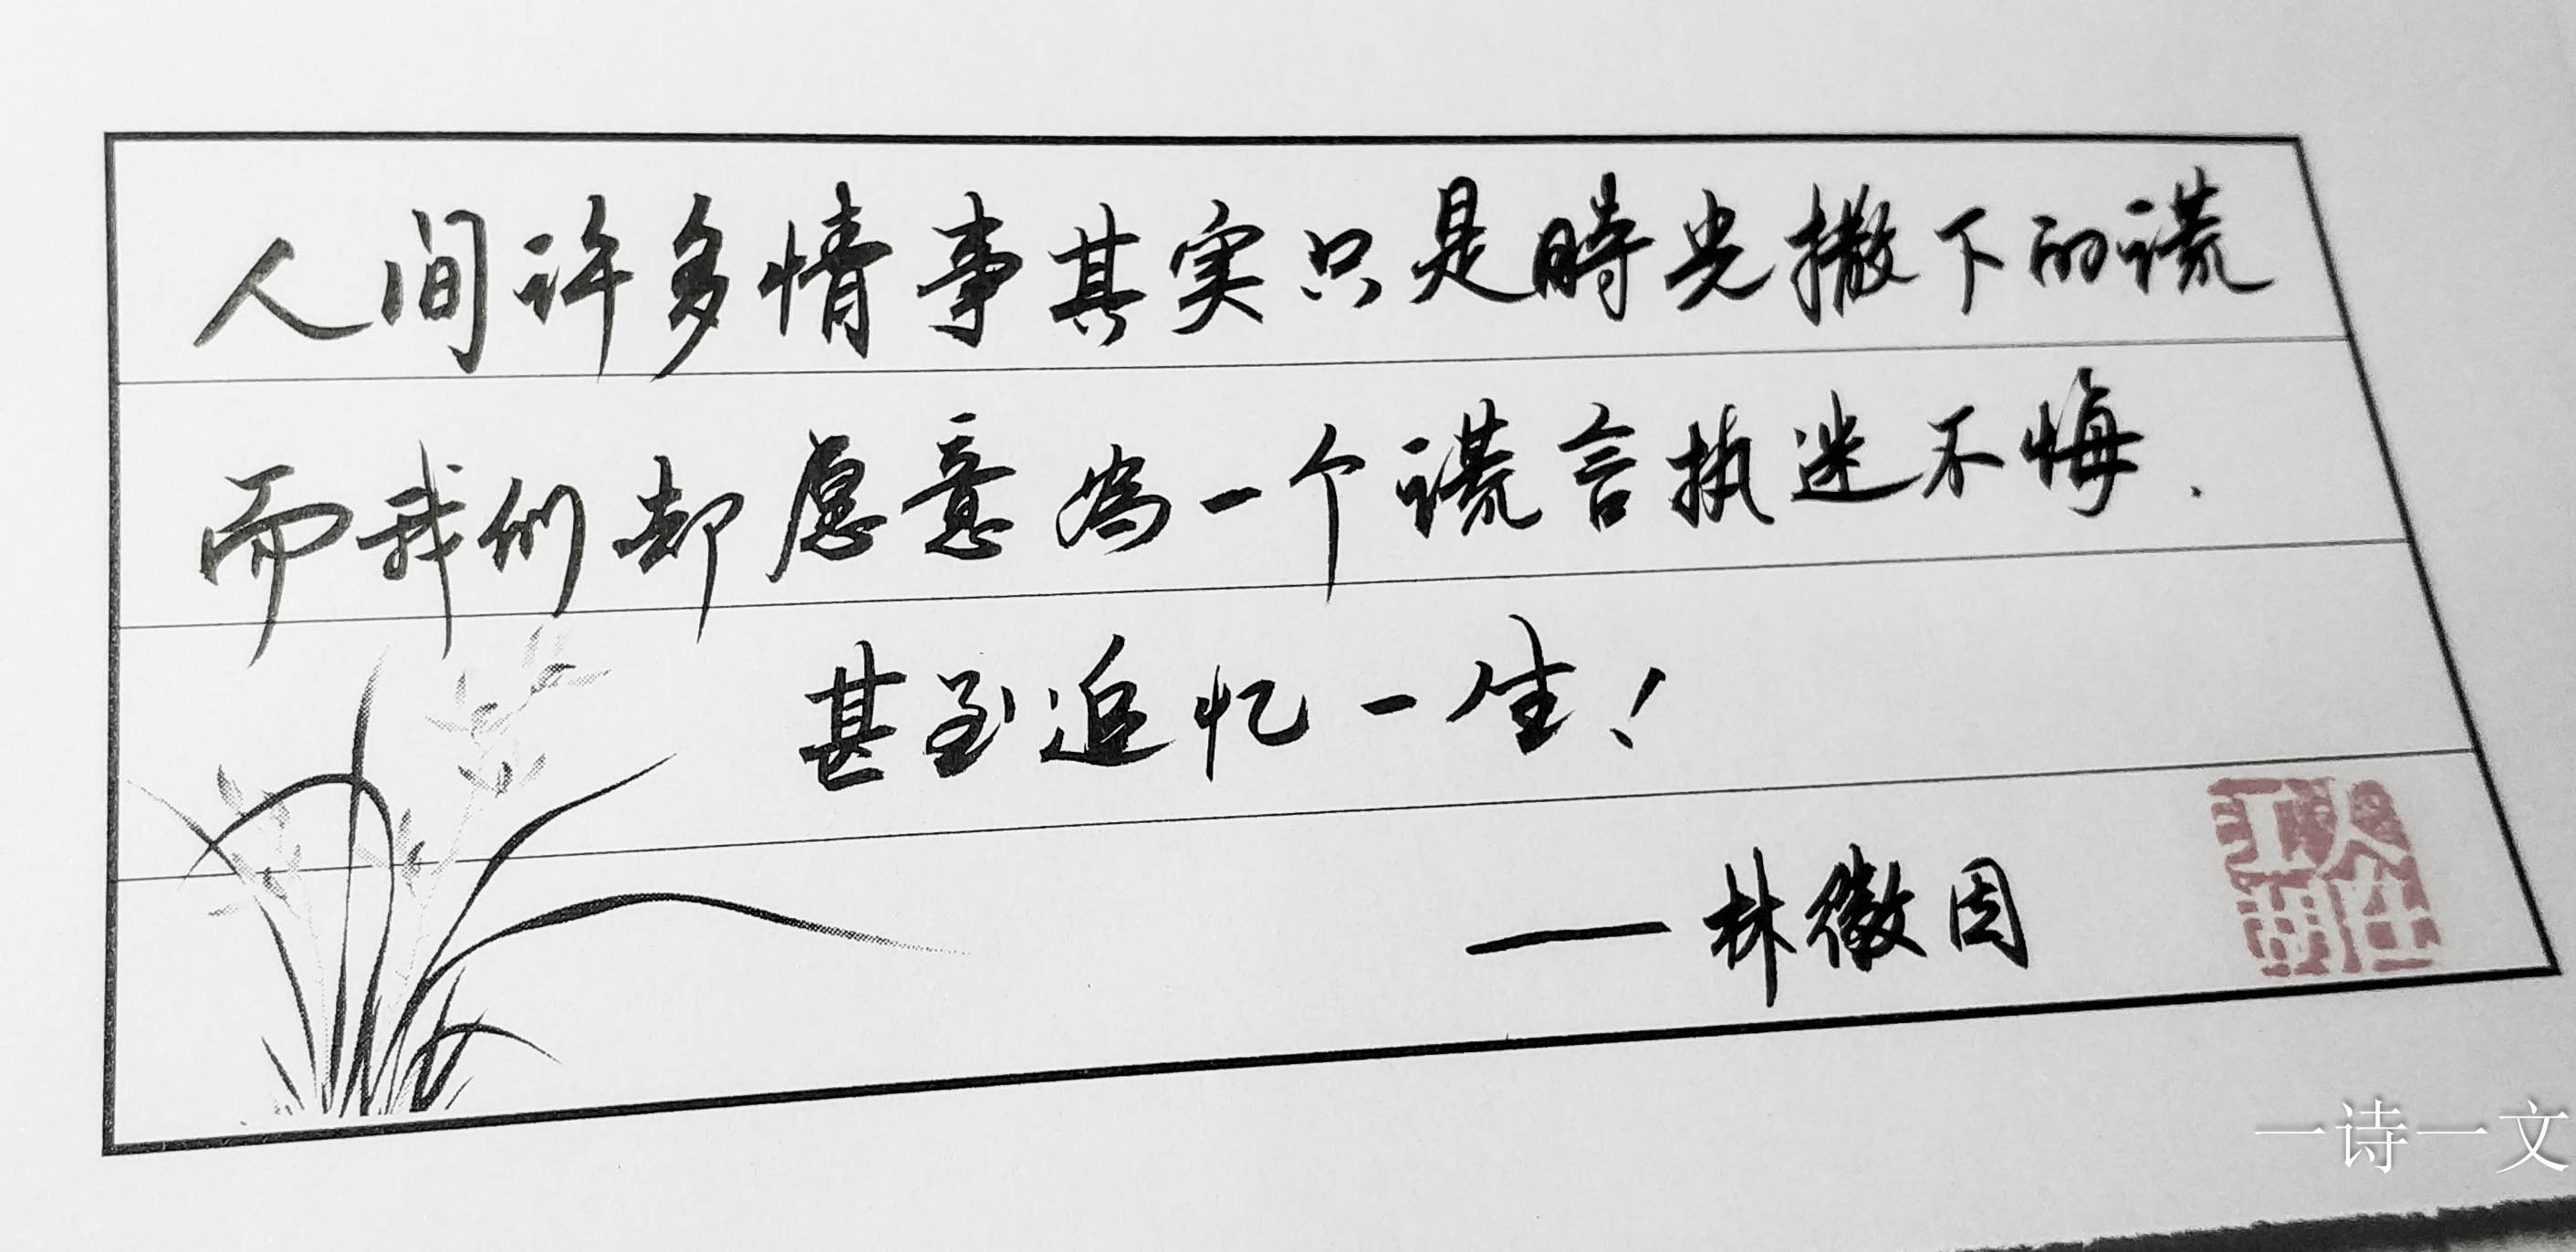 人间许多情事其实只是時光撒下的谎
而我们却愿意為一个谎言执迷不悔.
甚至追忆一生！
——林徽因
一诗一文